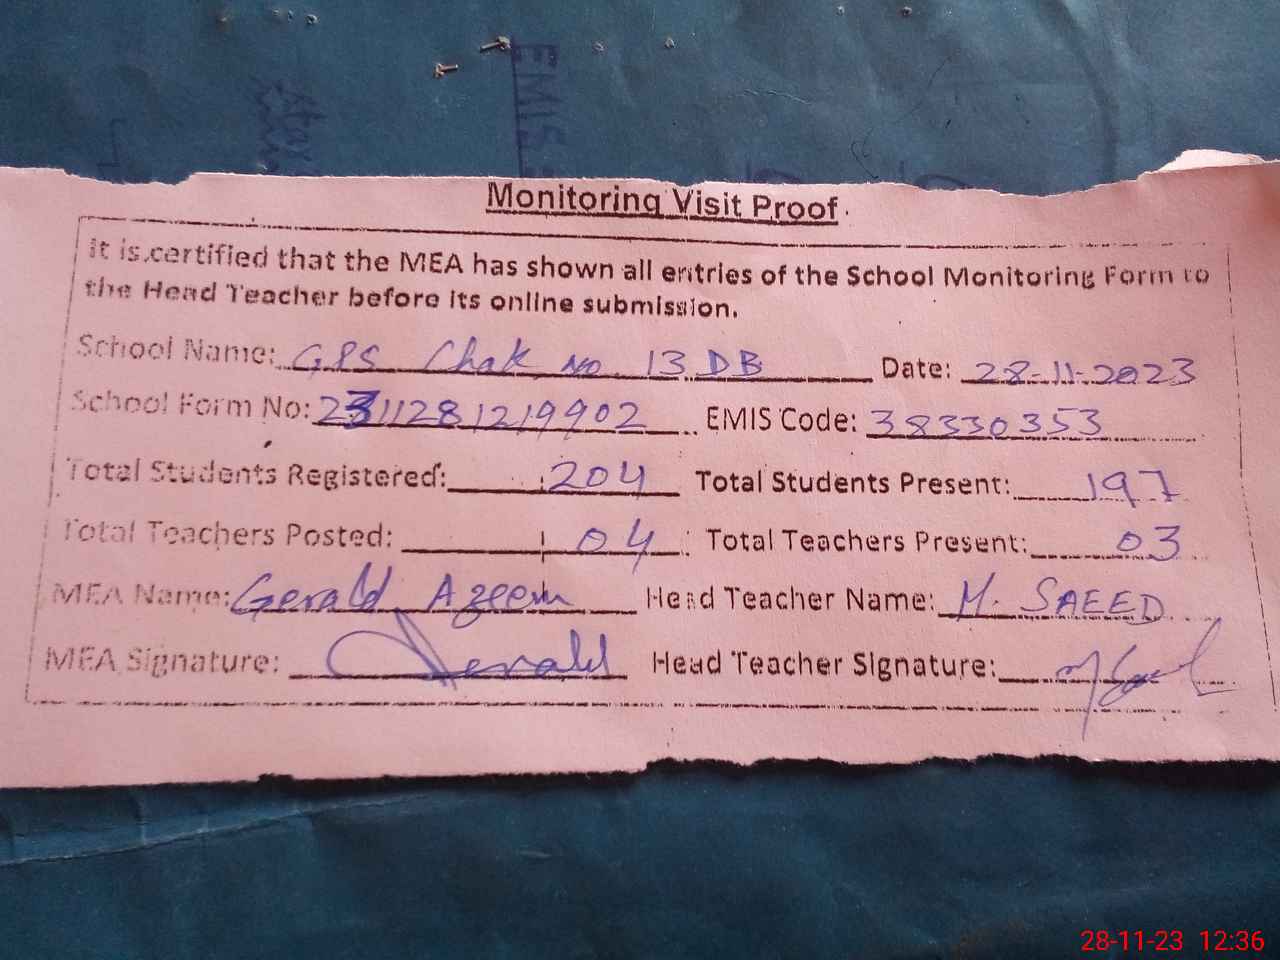 EMIS
Monitoring Visit Proof
It is certified that the MEA has shown all entries of the School Monitoring Form to
the Head Teacher before its online submission.
School Name: GPS Chak no. 13 DB Date: 28-11-2023
School Form No: 2311281219902 EMIS Code: 38330353
Total Students Registered: 204 Total Students Present: 197
Total Teachers Posted: 04 Total Teachers Present: 03
MEA Name: Gerald Azeem Head Teacher Name: M. SAEED
MEA Signature: Gerald Head Teacher Signature:
28-11-23 12:36